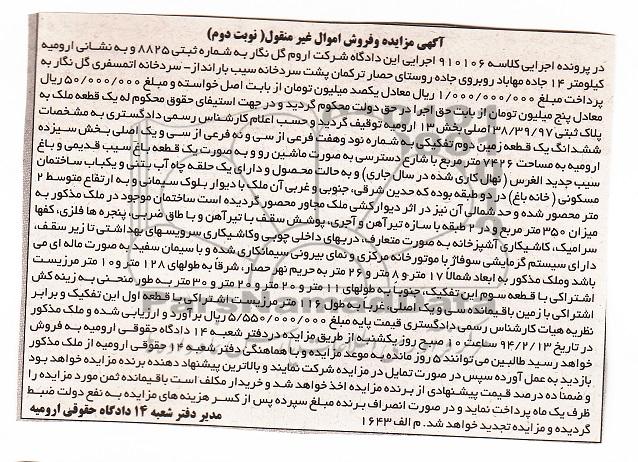 آگهی مزایده وفروش اموال غیر منقول( نوبت دوم)
در پرونده اجرایی کلاسه ۹۱۰۱۰۶ اجرایی این دادگاه شرکت اروم گل نگار به شماره ثبتی ۸۸۲۵ و به نشانی ارومیه
کیلومتر ۱۴ جاده مهاباد روبروی جاده روستای حصار ترکمان پشت سردخانه سیب بارانداز- سردخانه اتمسفری گل نگار به
پرداخت مبلغ ۱/۰۰۰/۰۰۰/۰۰۰ ریال معادل یکصد میلیون تومان از بابت اصل خواسته و مبلغ ۵۰/۰۰۰/۰۰۰ ریال
معادل پنج میلیون تومان از بابت حق اجرا در حق دولت محکوم گردید و در جهت استیفای حقوق محکوم له یک قطعه ملک به
پلاک ثبتی ۳۸/۳۹/۹۷ اصلی بخش ۱۳ ارومیه توقیف گردید و حسب اعلام کارشناس رسمی دادگستری به مشخصات
ششدانگ یک قطعه زمین دوم تفکیکی به شماره نود وهفت فرعی از سی و نه فرعی از سی و یک اصلی بخش سیزده
ارومیه به مساحت ۷۴۲۶ متر مربع با شارع دسترسی به صورت ماشین رو و به صورت یک قطعه باغ سیب قدیمی و باغ
سیب جدید الغرس (نهال کاری شده در سال جاری) و به حالت محصول و دارای یک حلقه چاه آب بتنی و یکباب ساختمان
مسکونی (خانه باغ) در دو طبقه بوده که حدین شرقی، جنوبی و غربی آن ملک با دیوار بلوک سیمانی و به ارتفاع متوسط ۲
متر محصور شده و حد شمالی آن نیز در اثر دیوارکشی ملک مجاور محصور گردیده است ساختمان موجود در ملک مذکور به
میزان ۳۵۰ متر مربع و در ۲ طبقه با سازه تیرآهن و آجری، پوشش سقف با تیرآهن و با طاق ضربی، پنجره ها فلزی، کفها
سرامیک، کاشیکاری آشپزخانه به صورت متعارف، دربهای داخلی چوبی وکاشیکاری سرویسهای بهداشتی تا زیر سقف،
دارای سیستم گرمایشی سوفاژ با موتورخانه مرکزی و نمای بیرونی سیمانکاری شده و با سیمان سفید به صورت ماله ای می
باشد وملک مذکور به ابعاد شمالاً ۱۷ متر و ۸ متر و ۲۶ متر به حریم نهر حصار، شرقاً به طولهای ۱۲۸ متر و ۱۰ متر مرزیست
اشتراکی با قطعه سوم این تفکیک، جنوبا به طولهای ۱۱ متر و ۲۰ متر و ۲۰ متر و ۳۰ متر به طور منحنی به زینه کش
اشتراکی با زمین باقیمانده سی و یک اصلی، غربا به طول ۱۱۶ متر مرزیست اشتراکی با قطعه اول این تفکیک و برابر
نظریه هیات کارشناس رسمی دادگستری قیمت پایه مبلغ ۵/۵۵۰/۰۰۰/۰۰۰ ریال برآورد و ارزیابی شده و ملک مذکور
در تاریخ ۹۴/۲/۱۳ ساعت ۱۰ صبح روز یکشنبه از طریق مزایده در دفتر شعبه ۱۴ دادگاه حقوقی ارومیه به فروش
خواهد رسید طالبین می توانند ۵ روز مانده به موعد مزایده و با هماهنگی دفتر شعبه ۱۴ حقوقی ارومیه از ملک مذکور
بازدید به عمل آورده سپس در صورت تمایل در مزایده شرکت نمایند و بالاترین پیشنهاد دهنده برنده مزایده خواهد بود
و ضمنا ده درصد قیمت پیشنهادی از برنده مزایده اخذ خواهد شد و خریدار مکلف است باقیمانده ثمن مورد مزایده را
ظرف یک ماه پرداخت نماید و در صورت انصراف برنده مبلغ سپرده پس از کسر هزینه های مزایده به نفع دولت ضبط
گردیده و مزایده تجدید خواهد شد. م الف ۱۶۴۳
مدیر دفتر شعبه ۱۴ دادگاه حقوقی ارومیه